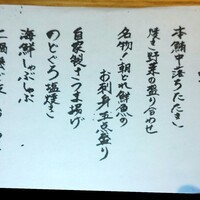 本鮪中落ちたたき
焼き野菜の盛り合わせ
名物!朝とれ鮮魚の
お刺身五点盛り
自家製さつま揚げ
のどぐろ塩焼き
海鮮しゃぶしゃぶ